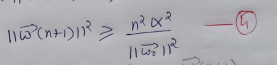 ||w⃗(n+1)||² ≥ n²α² / ||w⃗₀||² — 4